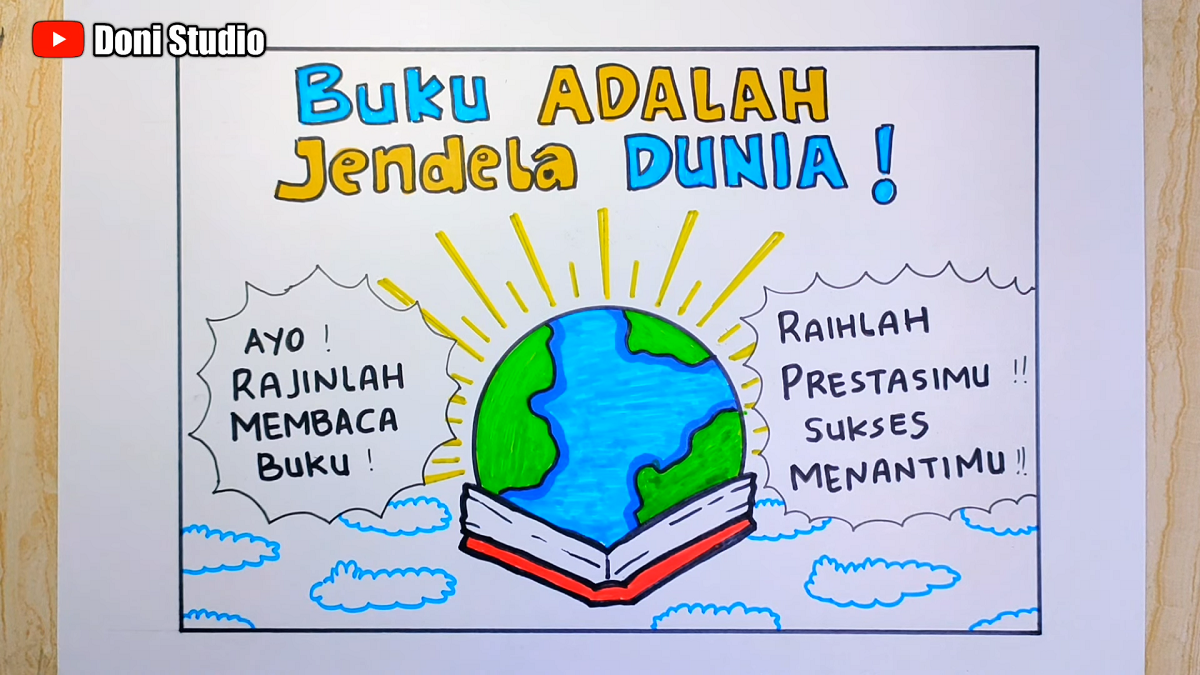 Doni Studio
Buku ADALAH
Jendela DUNIA !
AYO !
RAJINLAH
MEMBACA
BUKU !
RAIHLAH
PRESTASIMU !!
SUKSES
MENANTIMU !!